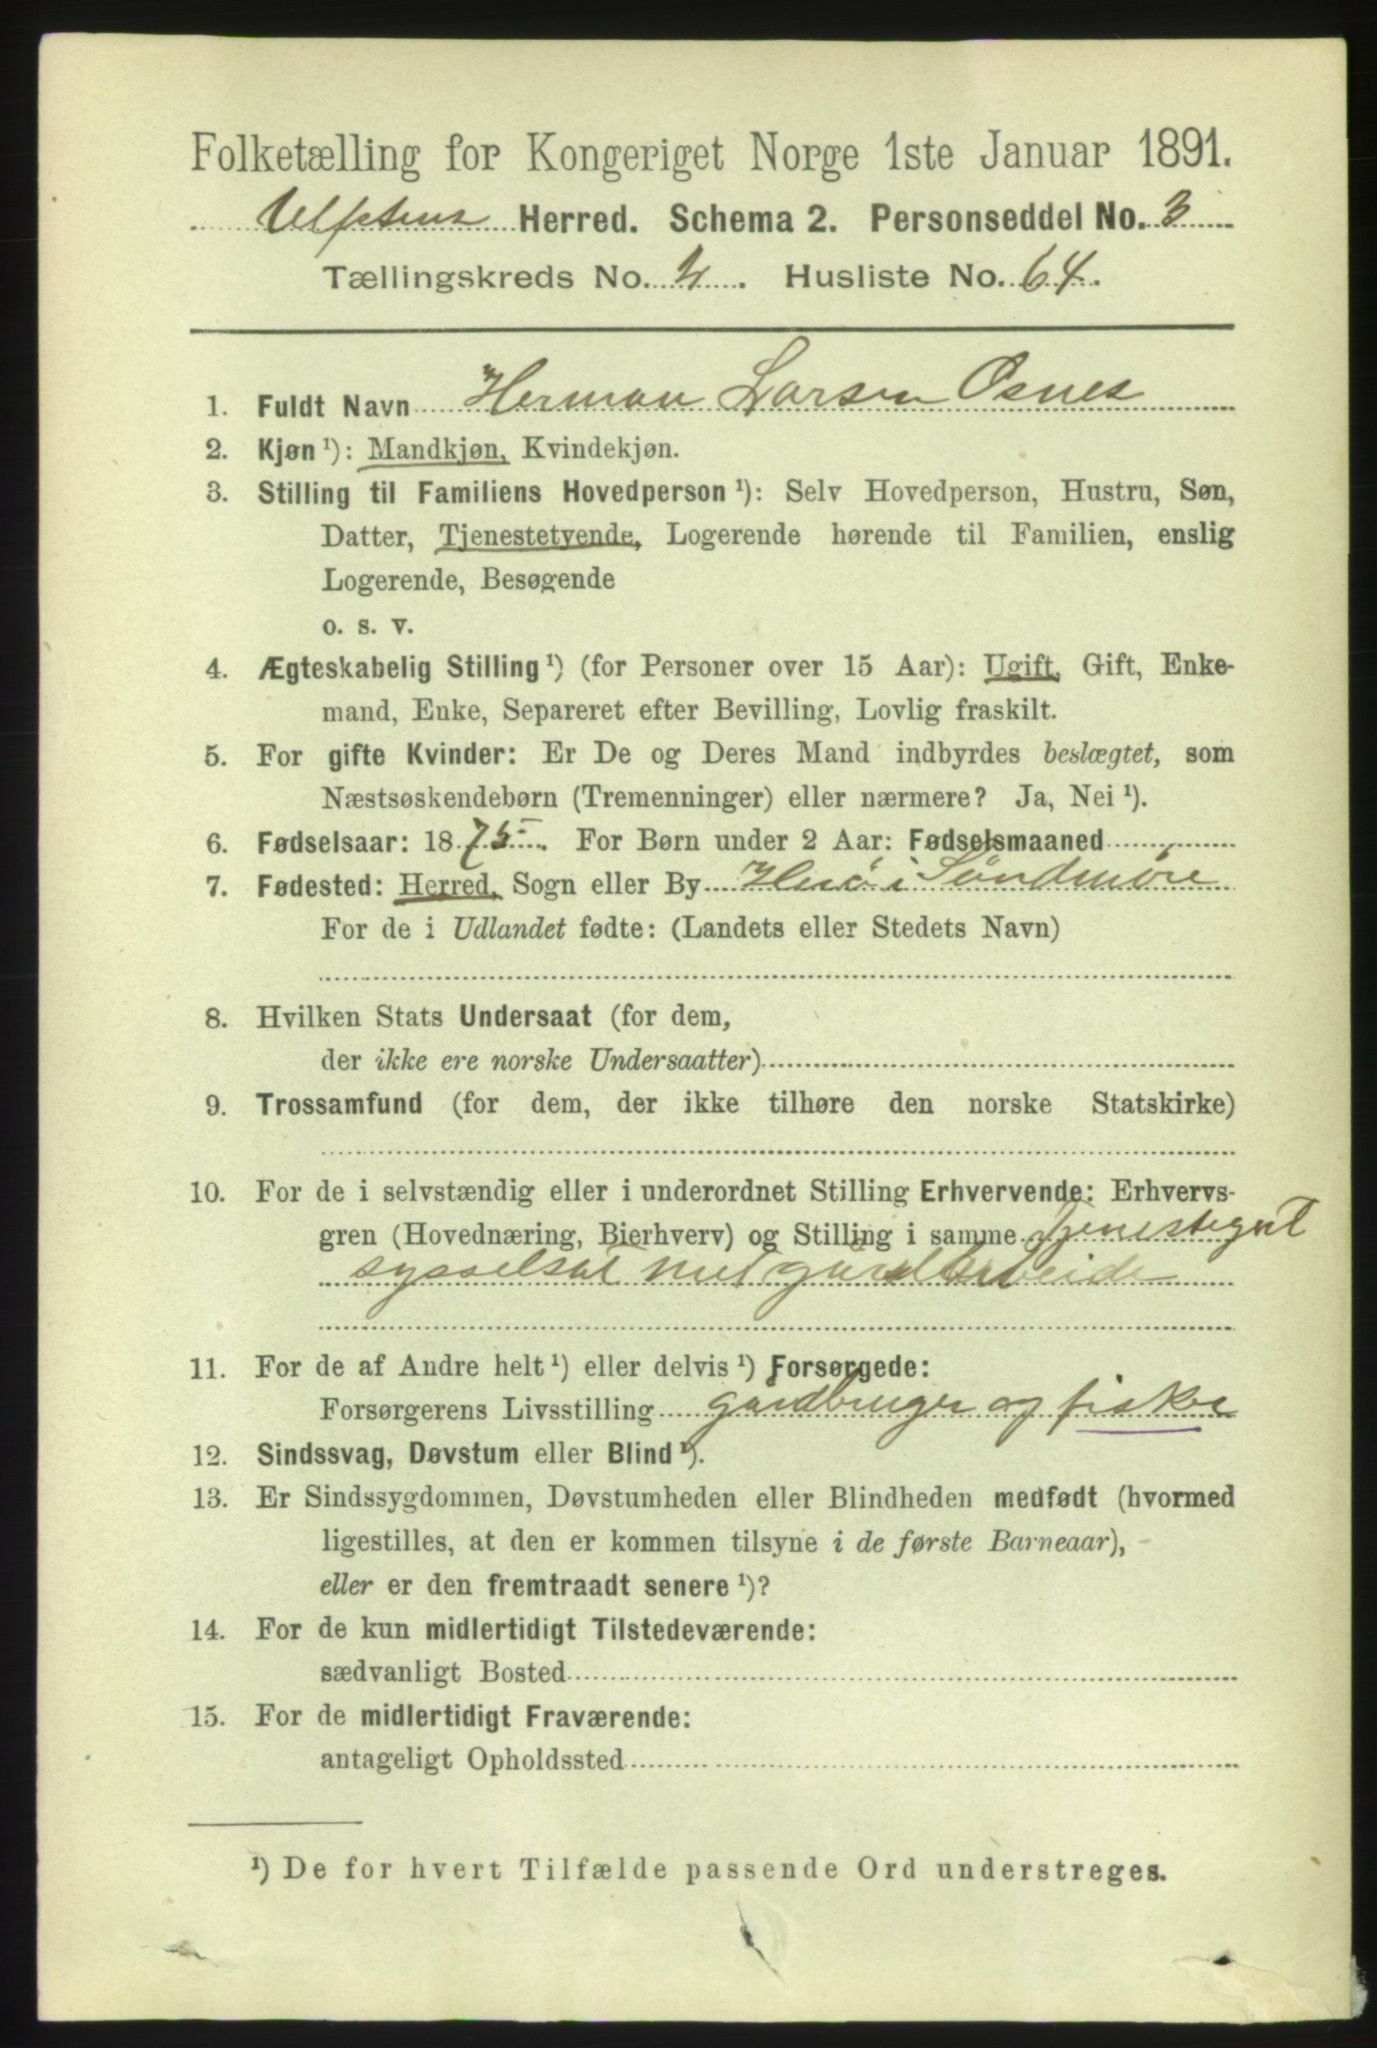 Folketælling for Kongeriget Norge 1ste Januar 1891.
Ulfstens Herred. Schema 2. Personseddel No. 3
Tællingskreds No. 2. Husliste No. 64.
1. Fuldt Navn Herman Larsen Osnes
2. Kjøn ¹): Mandkjøn, Kvindekjøn.
3. Stilling til Familiens Hovedperson ¹): Selv Hovedperson, Hustru, Søn,
Datter, Tjenestetyende, Logerende hørende til Familien, enslig
Logerende, Besøgende
o. s. v.
4. Ægteskabelig Stilling ¹) (for Personer over 15 Aar): Ugift, Gift, Enke-
mand, Enke, Separeret efter Bevilling, Lovlig fraskilt.
5. For gifte Kvinder: Er De og Deres Mand indbyrdes beslægtet, som
Næstsøskendebørn (Tremenninger) eller nærmere? Ja, Nei ¹).
6. Fødselsaar: 1875. For Børn under 2 Aar: Fødselsmaaned
7. Fødested: Herred, Sogn eller By Herö i Söndmöre
For de i Udlandet fødte: (Landets eller Stedets Navn)
8. Hvilken Stats Undersaat (for dem,
der ikke ere norske Undersaatter)
9. Trossamfund (for dem, der ikke tilhøre den norske Statskirke)
10. For de i selvstændig eller i underordnet Stilling Erhvervende: Erhvervs-
gren (Hovednæring, Bierhverv) og Stilling i samme tjenestegut
sysselsat med gårdsarbeide
11. For de af Andre helt ¹) eller delvis ¹) Forsørgede:
Forsørgerens Livsstilling gårdbruger og fisker
12. Sindssvag, Døvstum eller Blind ¹).
13. Er Sindssygdommen, Døvstumheden eller Blindheden medfødt (hvormed
ligestilles, at den er kommen tilsyne i de første Barneaar),
eller er den fremtraadt senere ¹)?
14. For de kun midlertidigt Tilstedeværende:
sædvanligt Bosted
15. For de midlertidigt Fraværende:
antageligt Opholdssted
¹) De for hvert Tilfælde passende Ord understreges.